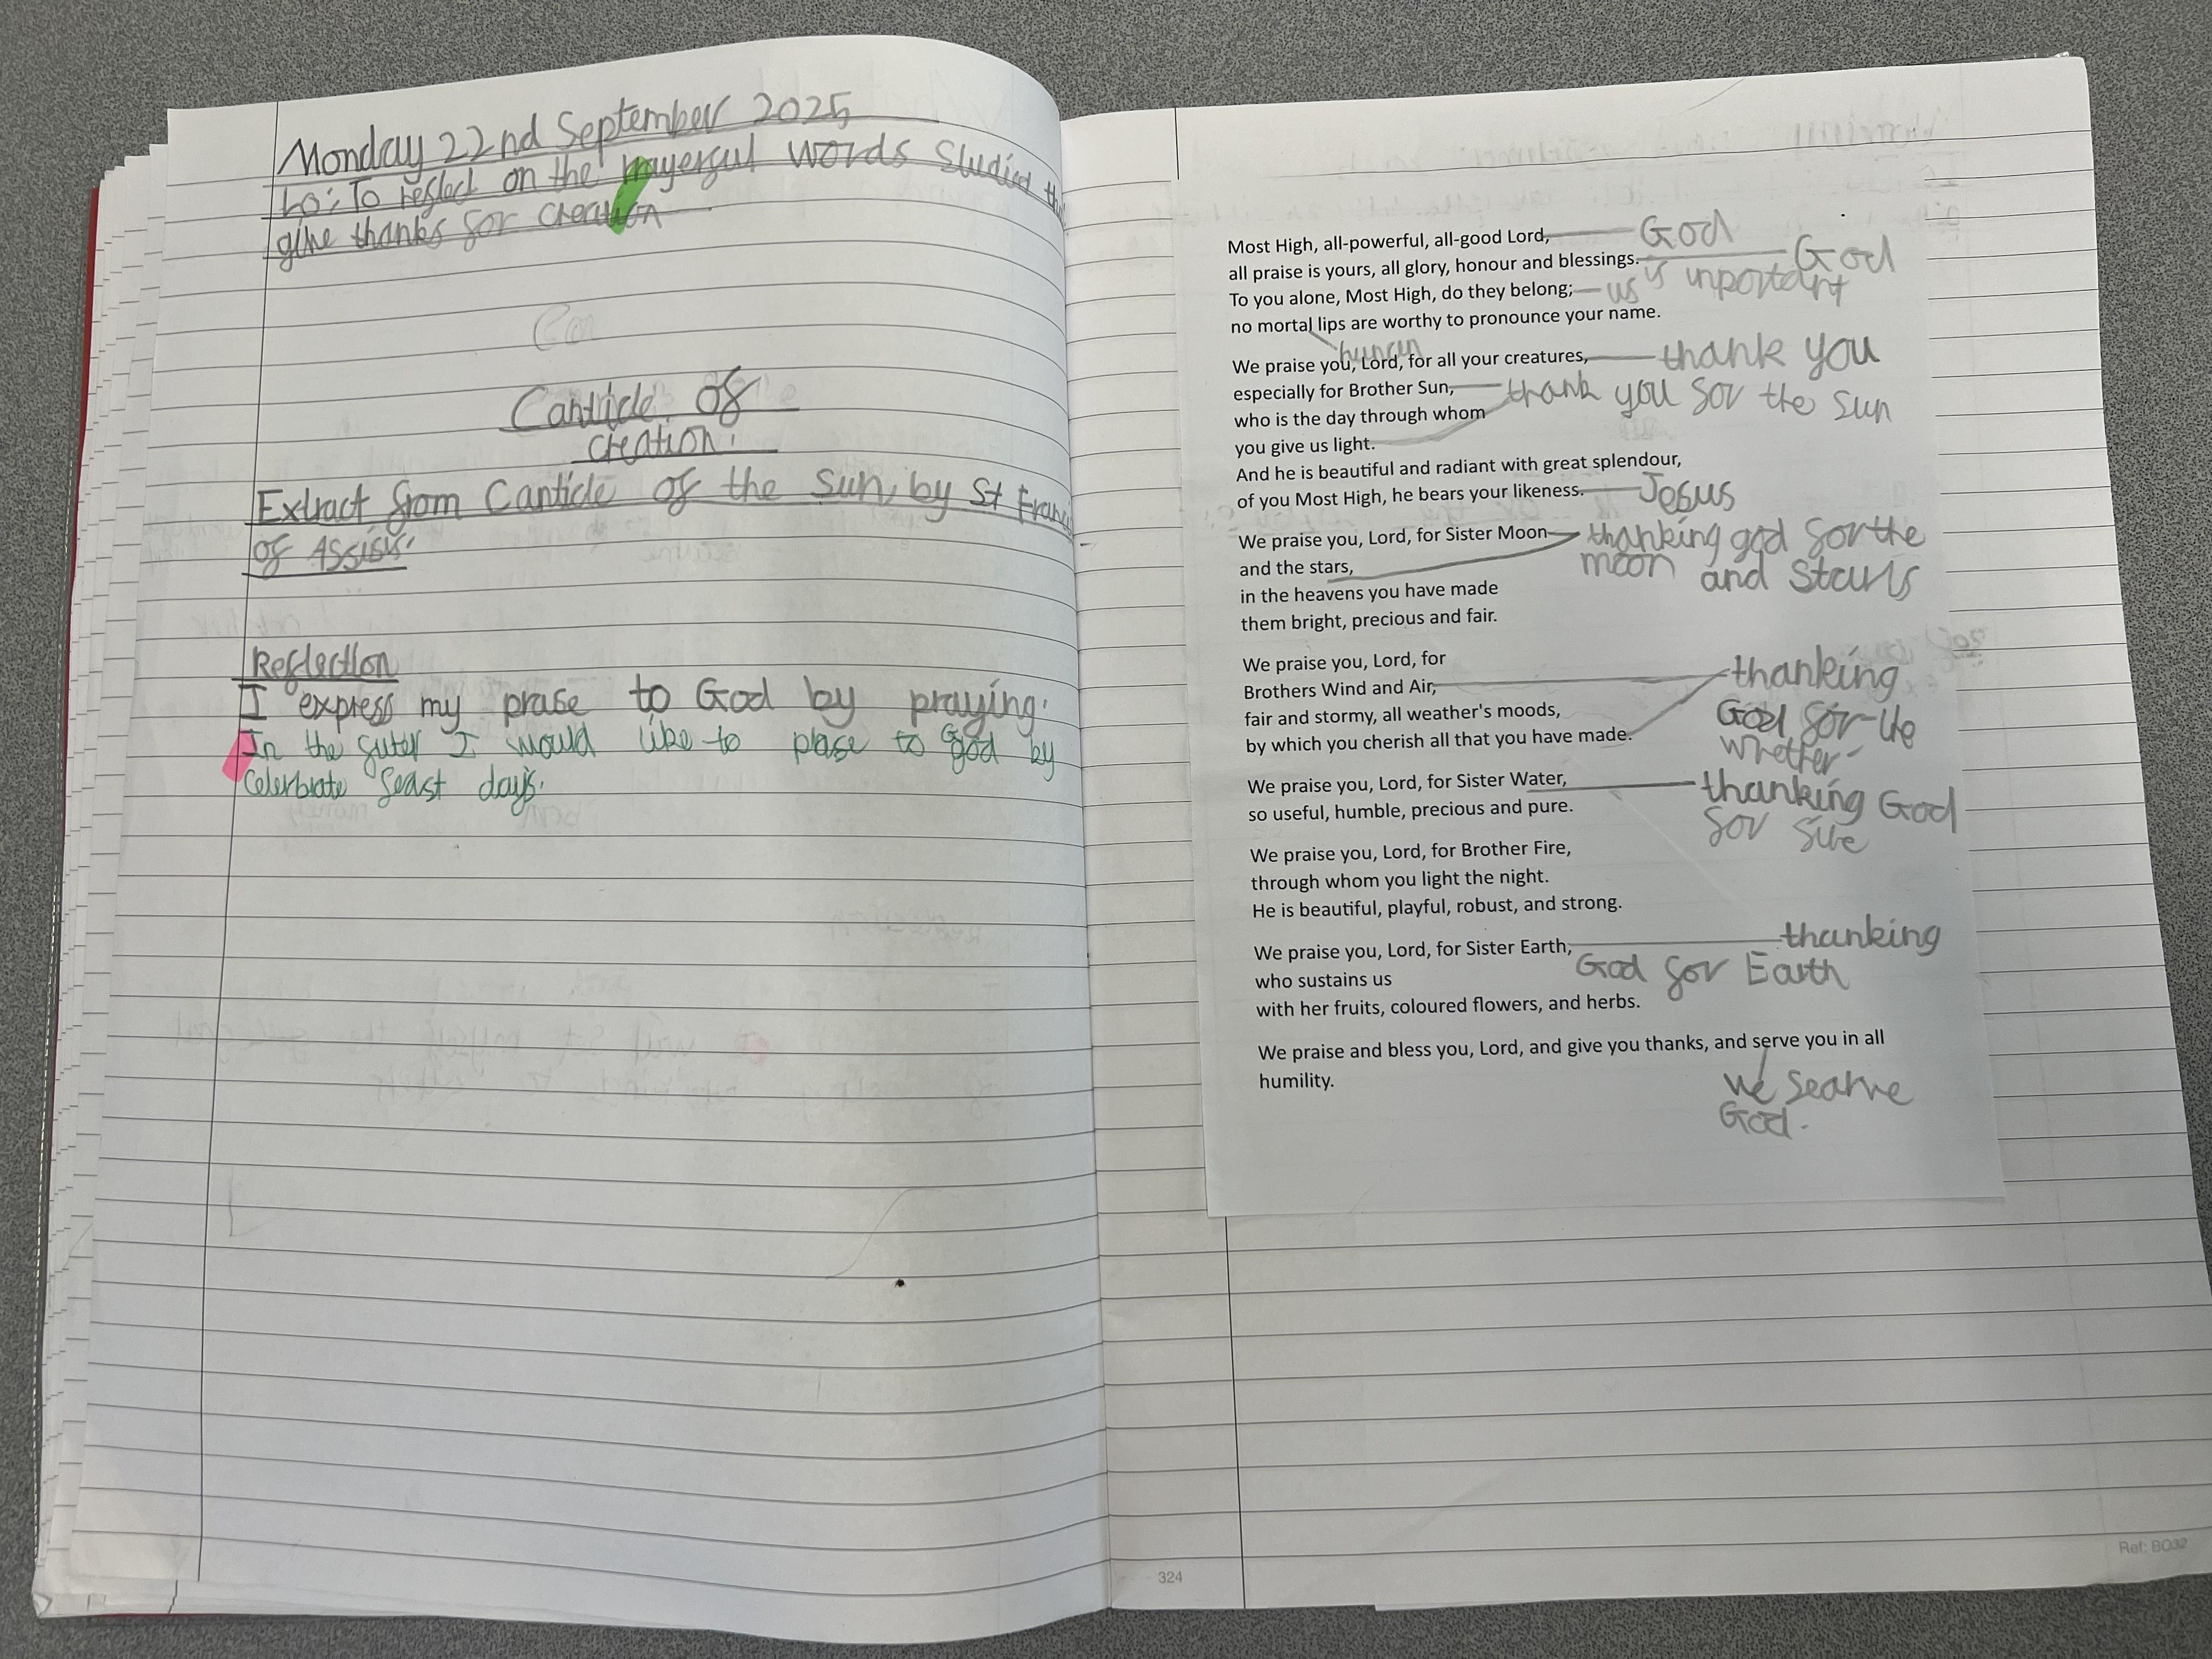 Monday 22nd September 2025
Lo: To reflect on the prayerful words Studied
give thanks for creation
Can
Canticle of
creation.
Extract from Canticle of the Sun, by St Francis
of Assisi.
Reflection
I express my praise to God by praying.
In the futer I would like to prase to God by
celerbrate feast days.
Most High, all-powerful, all-good Lord, God
all praise is yours, all glory, honour and blessings. God
is inportant
To you alone, Most High, do they belong; us
no mortal lips are worthy to pronounce your name.
human
We praise you, Lord, for all your creatures, thank you
especially for Brother Sun, thank you for the Sun
who is the day through whom
you give us light.
And he is beautiful and radiant with great splendour,
of you Most High, he bears your likeness. Jesus
We praise you, Lord, for Sister Moon thanking god for the
and the stars, moon and Stars
in the heavens you have made
them bright, precious and fair.
We praise you, Lord, for
Brothers Wind and Air, thanking
fair and stormy, all weather's moods, God for the
by which you cherish all that you have made. whether
We praise you, Lord, for Sister Water, thanking God
so useful, humble, precious and pure. for
We praise you, Lord, for Brother Fire,
through whom you light the night.
He is beautiful, playful, robust, and strong.
We praise you, Lord, for Sister Earth, thanking
who sustains us God for Earth
with her fruits, coloured flowers, and herbs.
We praise and bless you, Lord, and give you thanks, and serve you in all
humility.
we searve
God.
324
Ref: BO32